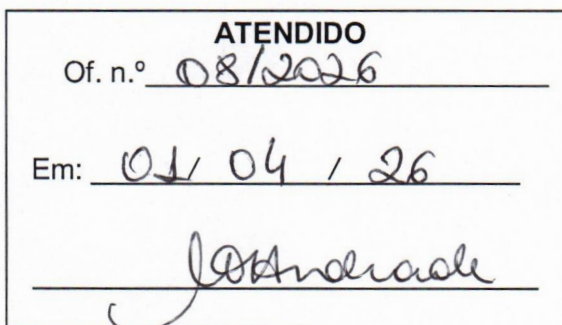 ATENDIDO
Of. n.º 08/2026
Em: 01/ 04 / 26